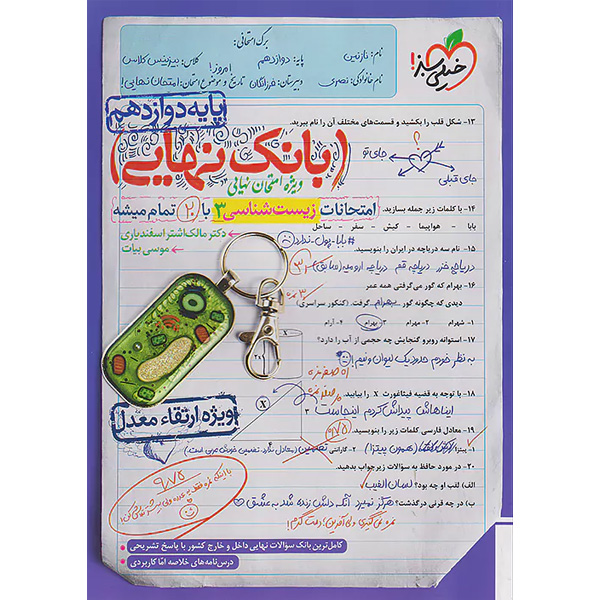 خیلی سبز!
برگ امتحانی:
نام: نازنین
پایه: دوازدهم
کلاس: بهترین کلاس
امروز!
نام خانوادگی: نصری
دبیرستان: فرزانگان
تاریخ و موضوع امتحان: امتحان نهایی!
پایه دوازدهم
۱۳- شکل قلب را بکشید و قسمت‌های مختلف آن را نام ببرید.
(بانک نهایی)
ویژه امتحان نهایی
جای تو
جای قبلی
۱۴- با کلمات زیر جمله بسازید.
امتحانات زیست‌شناسی ۳ با ۲۰ تمام میشه
بابا - هواپیما - کیش - سفر - ساحل
دکتر مالک‌اشتر اسفندیاری
#بابا-پول-ندارد
موسی بیات
۱۵- نام سه دریاچه در ایران را بنویسید.
دریاچه خزر دریاچه قم دریاچه ارومیه (سابق)
۱۶- بهرام که گور می‌گرفتی همه عمر
دیدی که چگونه گور بهرام گرفت. (کنکور سراسری)
۱- شهرام ۲- مهرام ۳- بهرام ۴- آرام
۱۷- استوانه روبرو گنجایش چه حجمی از آب را دارد؟
به نظر خودم حدود یک لیوان و نیم!
۱۸- با توجه به قضیه فیثاغورث X را بیابید.
X
ایناهاش پیداش کردم اینجاست
ویژه ارتقاء معدل
۱۹- معادل فارسی کلمات زیر را بنویسید.
۱- پیتزا (همون پیتزا) ۲- گارانتی تضمین
۲۰- در مورد حافظ به سؤالات زیر جواب بدهید.
الف) لقب او چه بود؟ لسان الغیب
ب) در چه قرنی درگذشت؟ هرگز نمیرد آنکه دلش زنده شد به عشق
نمره نمی‌گیری ولی آفرین! دمت گرم!
۹/۷۵
کامل‌ترین بانک سؤالات نهایی داخل و خارج کشور با پاسخ تشریحی
درس‌نامه‌های خلاصه امّا کاربردی